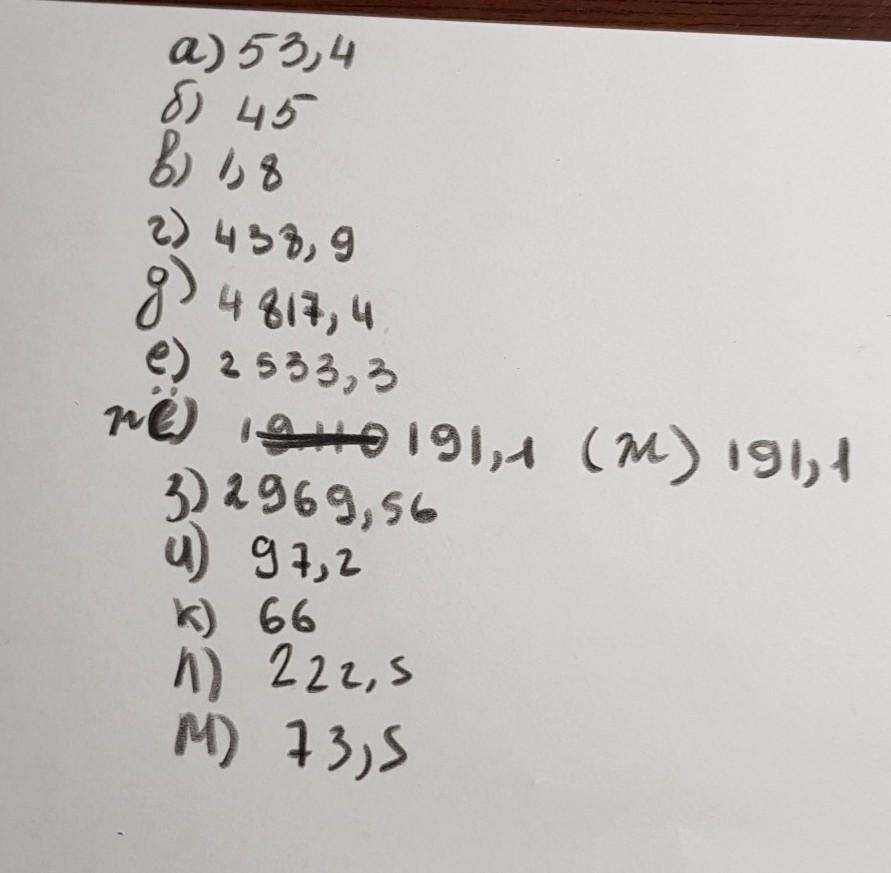 а) 53,4
б) 45
в) 1,8
г) 438,9
д) 4817,4
е) 2533,3
ё) 191,1 (ж) 191,1
з) 2969,56
и) 97,2
к) 66
л) 222,5
м) 73,5